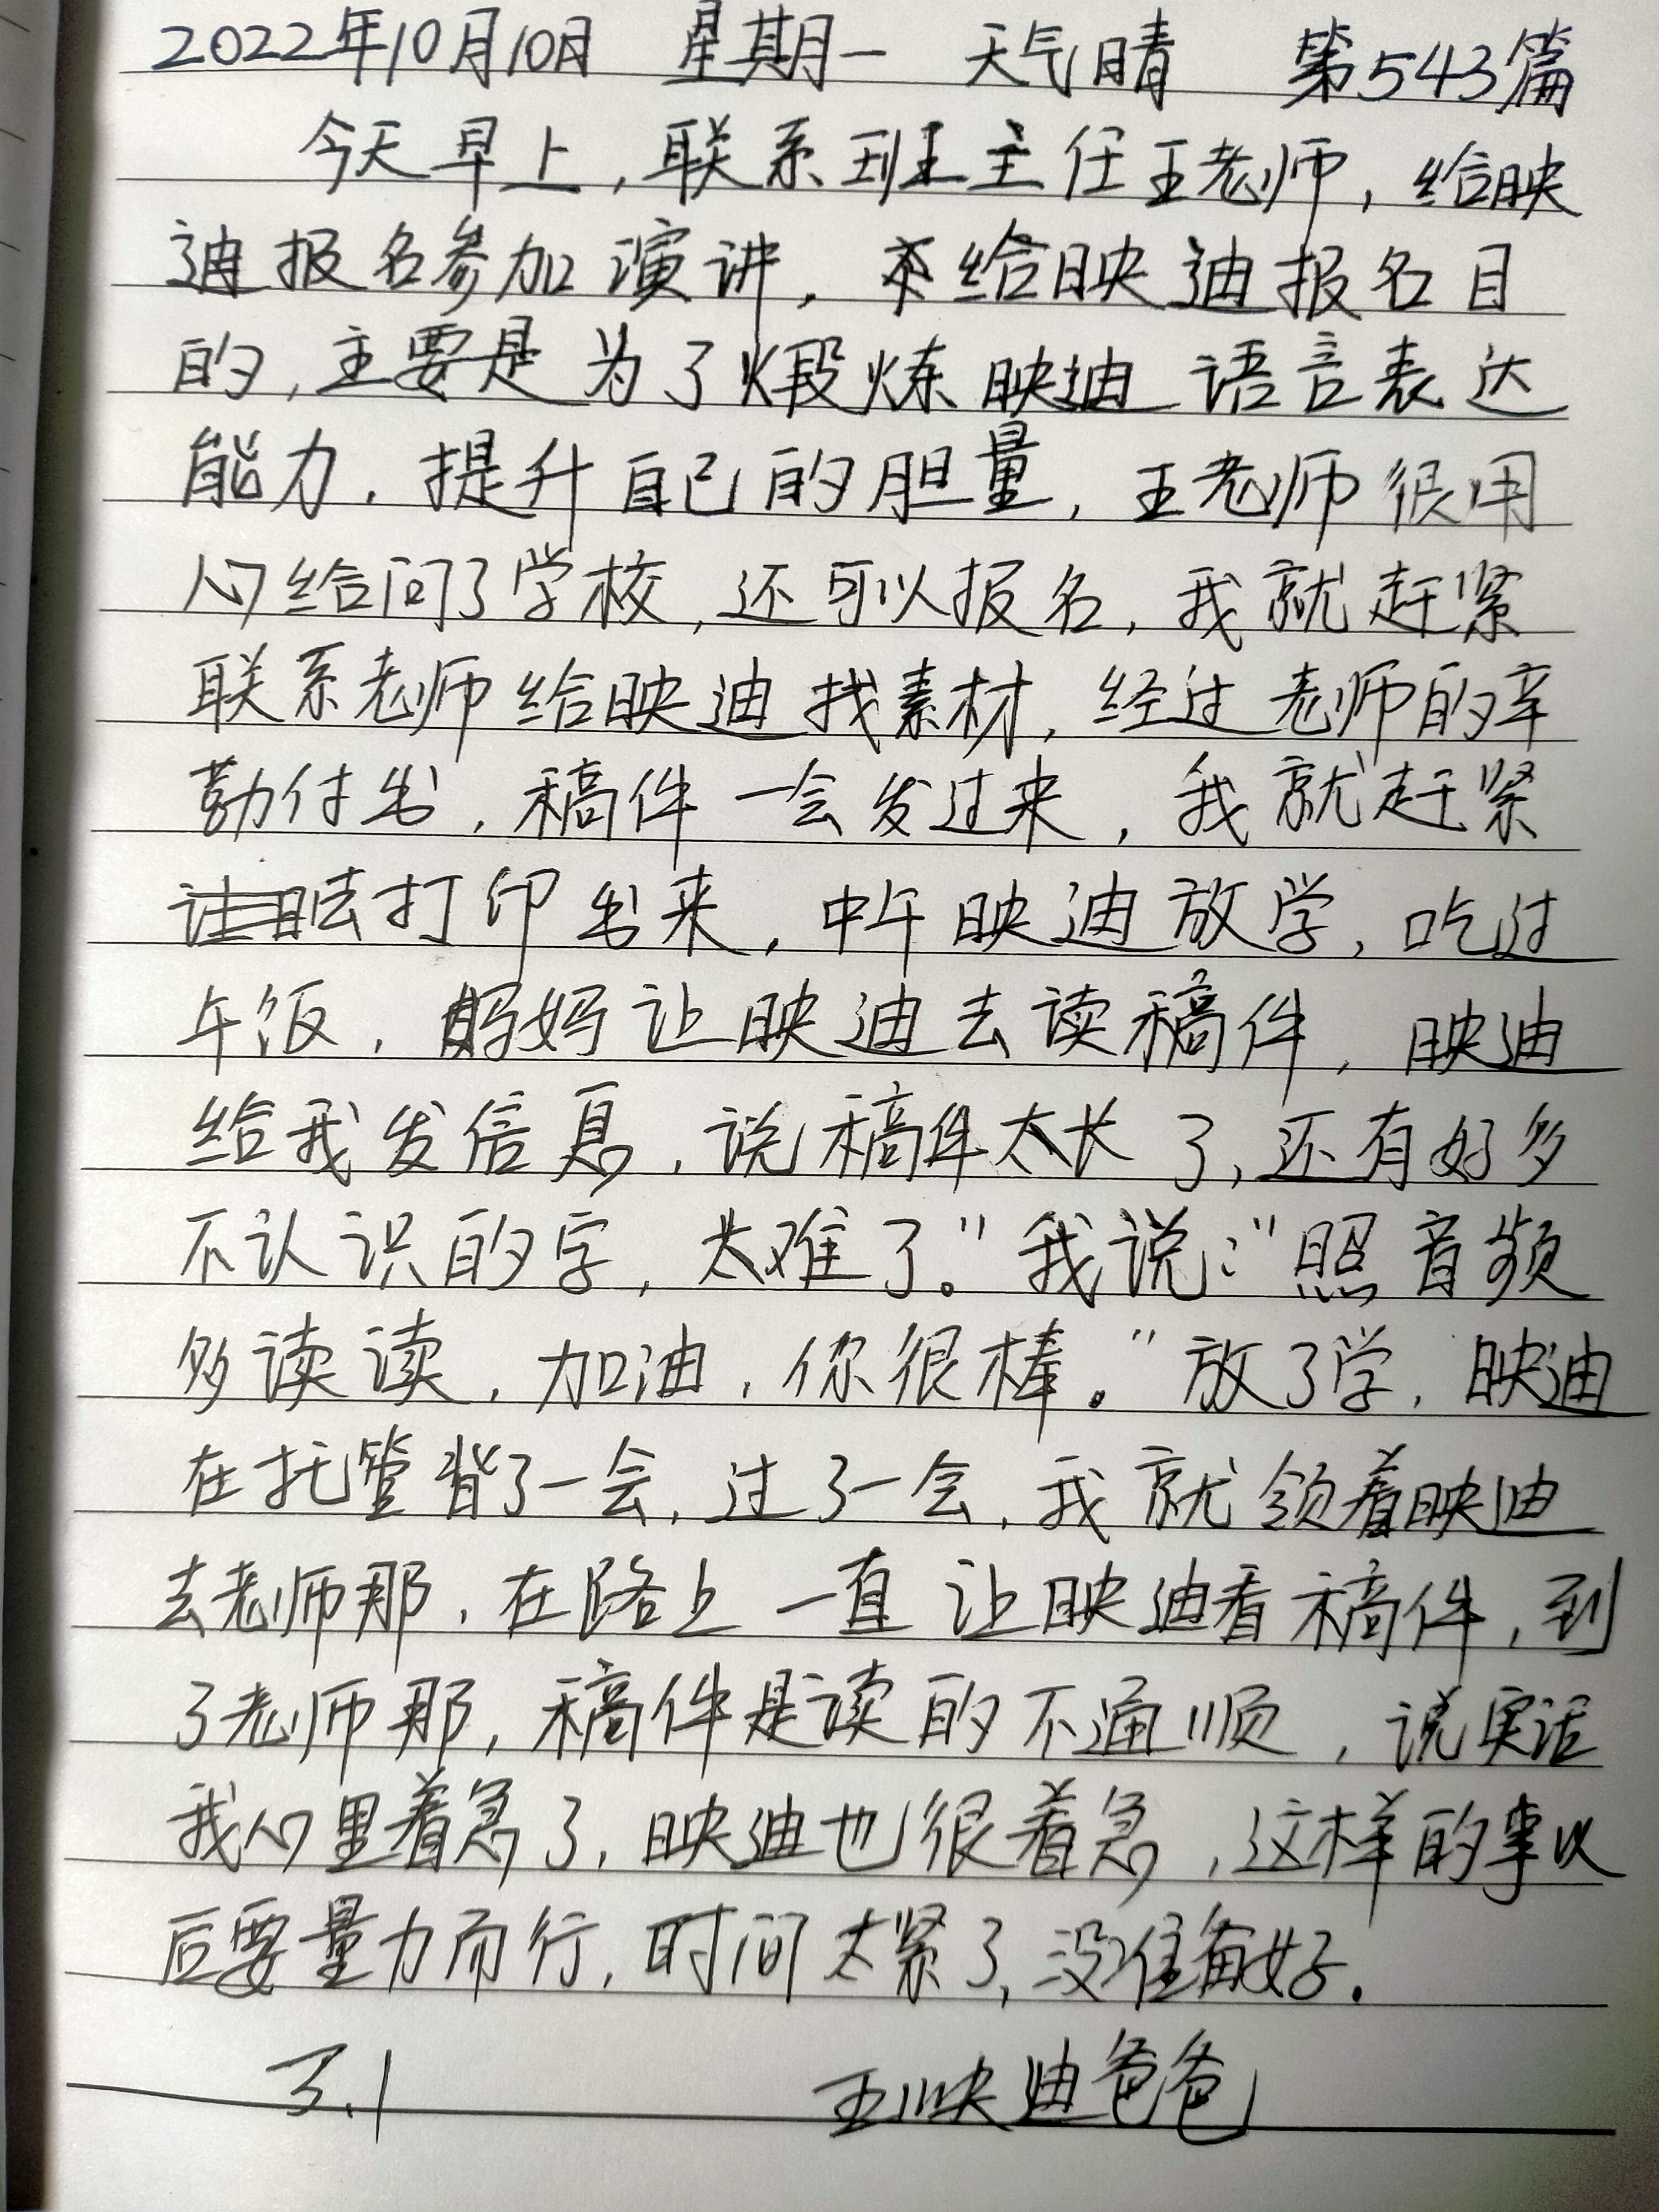 2022年10月10日 星期一 天气晴 第543篇
今天早上，联系到班主任王老师，给映
迪报名参加演讲，给映迪报名目
的，主要是为了煅炼映迪语言表达
能力，提升自己的胆量，王老师很用
心给问了学校，还可以报名，我就赶紧
联系老师给映迪找素材，经过老师的辛
勤付出，稿件一会发过来，我就赶紧
去打印出来，中午映迪放学，吃过
午饭，妈妈让映迪去读稿件，映迪
给我发信息，说稿件太长了，还有好多
不认识的字，太难了。"我说："照音频
多读读，加油，你很棒。"放了学，映迪
在托管背了一会，过了一会，我就领着映迪
去老师那，在路上一直让映迪看稿件，到
了老师那，稿件是读的不通顺，说实话
我心里着急了，映迪也很着急，这样的事以
后要量力而行，时间太紧了，没准备好.
3.1 王映迪爸爸